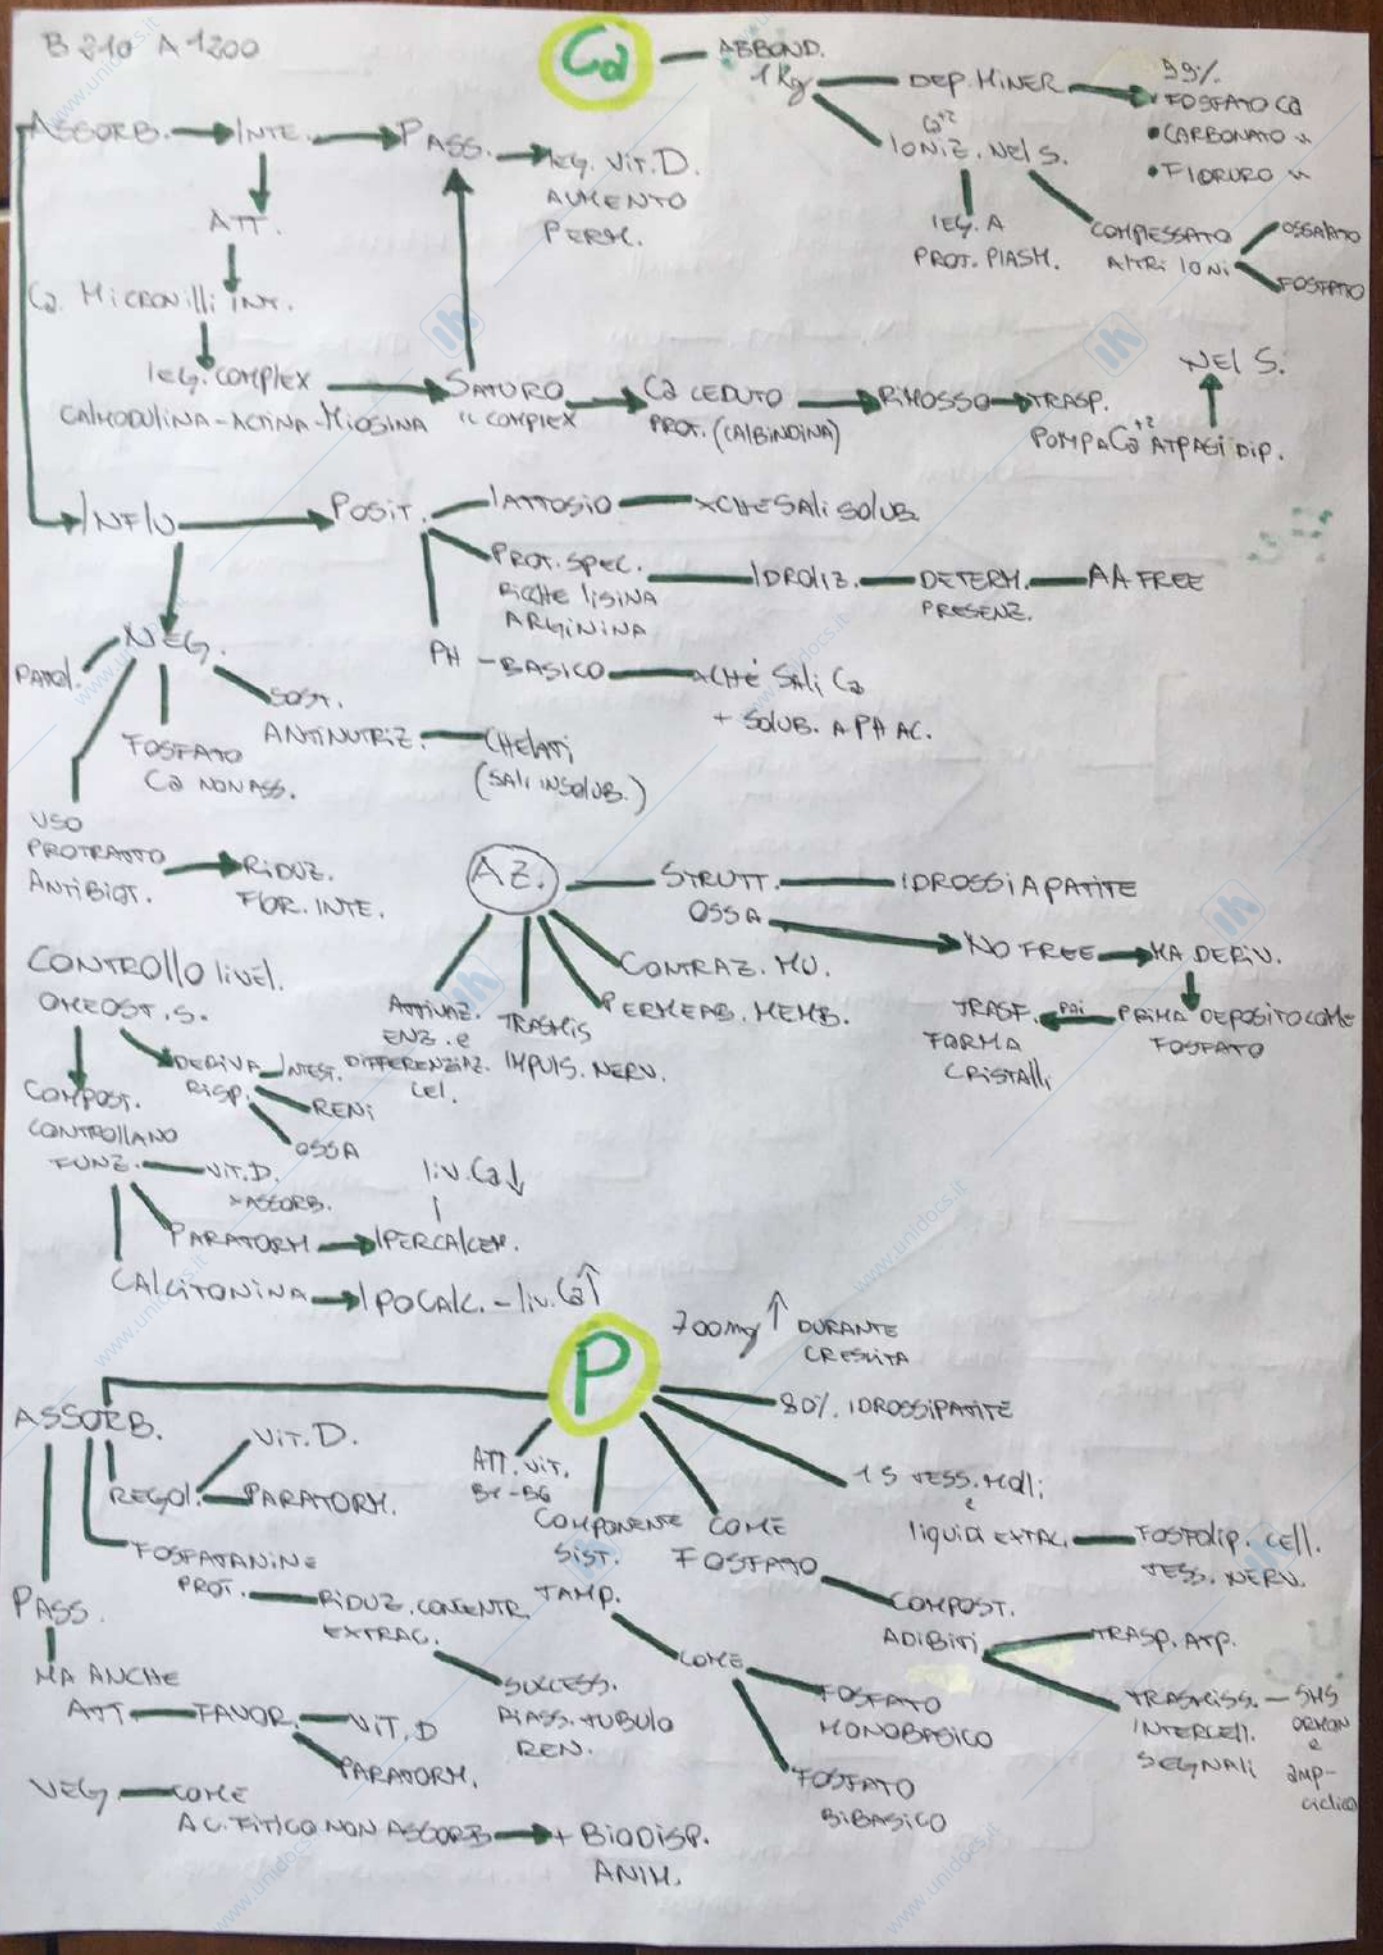 B 210 A 1200
Ca
ABBOND.
1 Kg
DEP. MINER
99%
FOSFATO Ca
• CARBONATO "
• FIORURO "
Ca+2
IONIZ. NEL S.
LEG. A
PROT. PLASM.
COMPLESSATO
ALTRI IONI
OSSALATO
FOSFATO
ASSORB.
INTE.
PASS.
LEG. VIT. D.
AUMENTO
PERM.
ATT.
Ca. MICROVILLI INT.
LEG. COMPLEX
CALMODULINA-ACTINA-MIOSINA
SATURO
IL COMPLEX
Ca CEDUTO
PROT. (CALBINDINA)
RIMOSSO
TRASP.
POMPA Ca+2 ATPASI DIP.
NEL S.
INFLU
POSIT.
LATTOSIO
XCHE SALI SOLUB.
PROT. SPEC.
RICCHE LISINA
ARGININA
IDROLIZ.
DETERM.
PRESENZ.
AA FREE
PH - BASICO
XCHÉ SALI Ca
+ SOLUB. A PH AC.
NEG.
PATOL.
FOSFATO
Ca NON ASS.
SOST.
ANTINUTRIZ.
CHELATI
(SALI INSOLUB.)
USO
PROTRATTO
ANTIBIOT.
RIDUZ.
FLOR. INTE.
AZ.
STRUTT.
OSSA
IDROSSIAPATITE
NO FREE
MA DERIV.
PRIMA DEPOSITO COME
FOSFATO
POI
TRASF.
FORMA
CRISTALLI
CONTRAZ. MU.
PERMEAB. MEMB.
TRASMIS
IMPULS. NERV.
ATTIVAZ.
ENZ. e
DIFFERENZIAZ.
CEL.
CONTROLLO LIVEL.
OMEOST. S.
DERIVA
RISP.
INTEST.
RENI
OSSA
COMPOST.
CONTROLLANO
FUNZ.
VIT. D.
X ASSORB.
PARATORM
IPERCALCEM.
LIV. Ca ↓
CALCITONINA
IPOCALC. - LIV. Ca ↑
P
700mg ↑ DURANTE
CRESCITA
80% IDROSSIPATITE
15 TESS. MOLLI
e
LIQUIDI EXTRAC.
FOSFOLIP. CELL.
TESS. NERV.
COME
FOSFATO
COMPOST.
ADIBITI
TRASP. ATP.
TRASMISS.
INTERCELL.
SEGNALI
ORMON
e
amp-
ciclico
COMPONENTE
SIST.
TAMP.
COME
FOSFATO
MONOBASICO
FOSFATO
BIBASICO
ATT. VIT.
ASSORB.
REGOL.
VIT. D.
PARATORM.
FOSFATANINE
PROT.
RIDUZ. CONCENTR.
EXTRAC.
SUCCESS.
RIASS. TUBULO
REN.
PASS.
MA ANCHE
ATT.
FAVOR.
VIT. D
PARATORM.
VEG
COME
AC. FITICO NON ASSORB
+ BIODISP.
ANIM.
www.unidocs.it